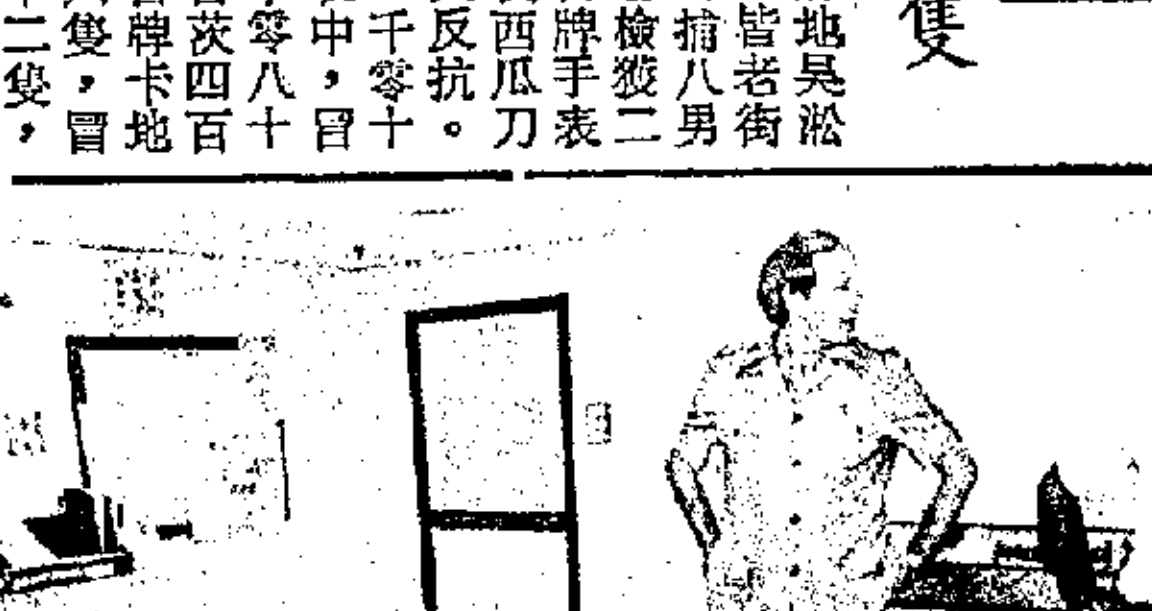 隻
地吳淞
皆老街
捕八男
檢獲二
牌手表
西瓜刀
反抗。
千零十
中，冒
零八十
茨四百
牌卡地
隻，冒
二隻，